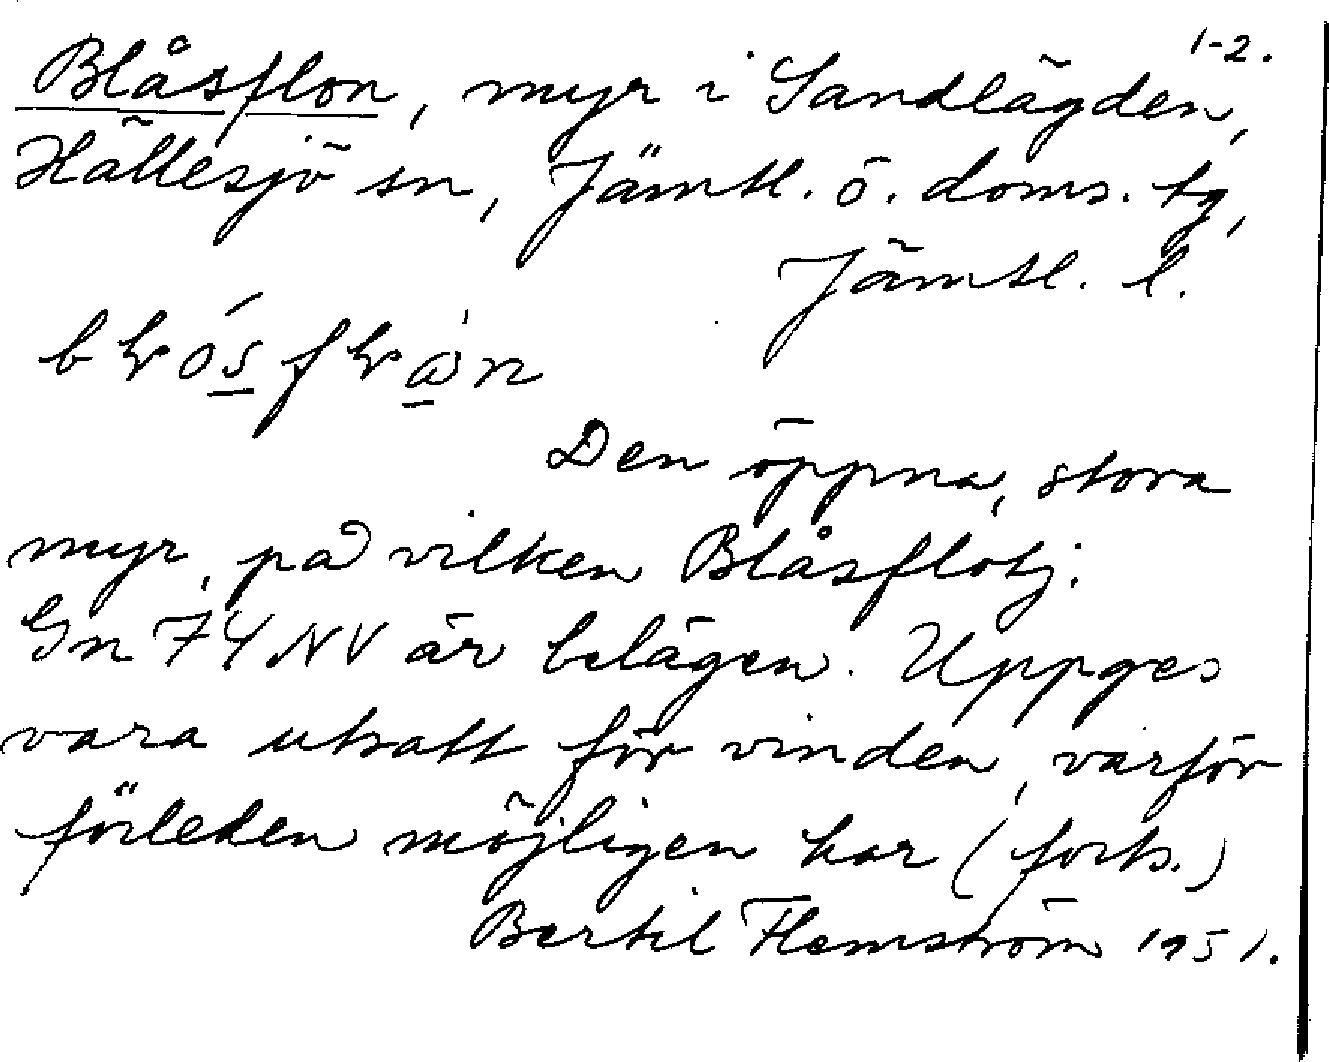 1-2.
Blåsflon, myr i Sandlägden,
Hällesjö sn, Jämtl. ö. doms. tg,
Jämtl. l.
Den öppna, stora
myr, på vilken Blåsflotj.
Gn 74 NV är belägen. Uppges
vara utsatt för vinden, varför
förleden möjligen har (forts.)
Bertil Flemström 1951.